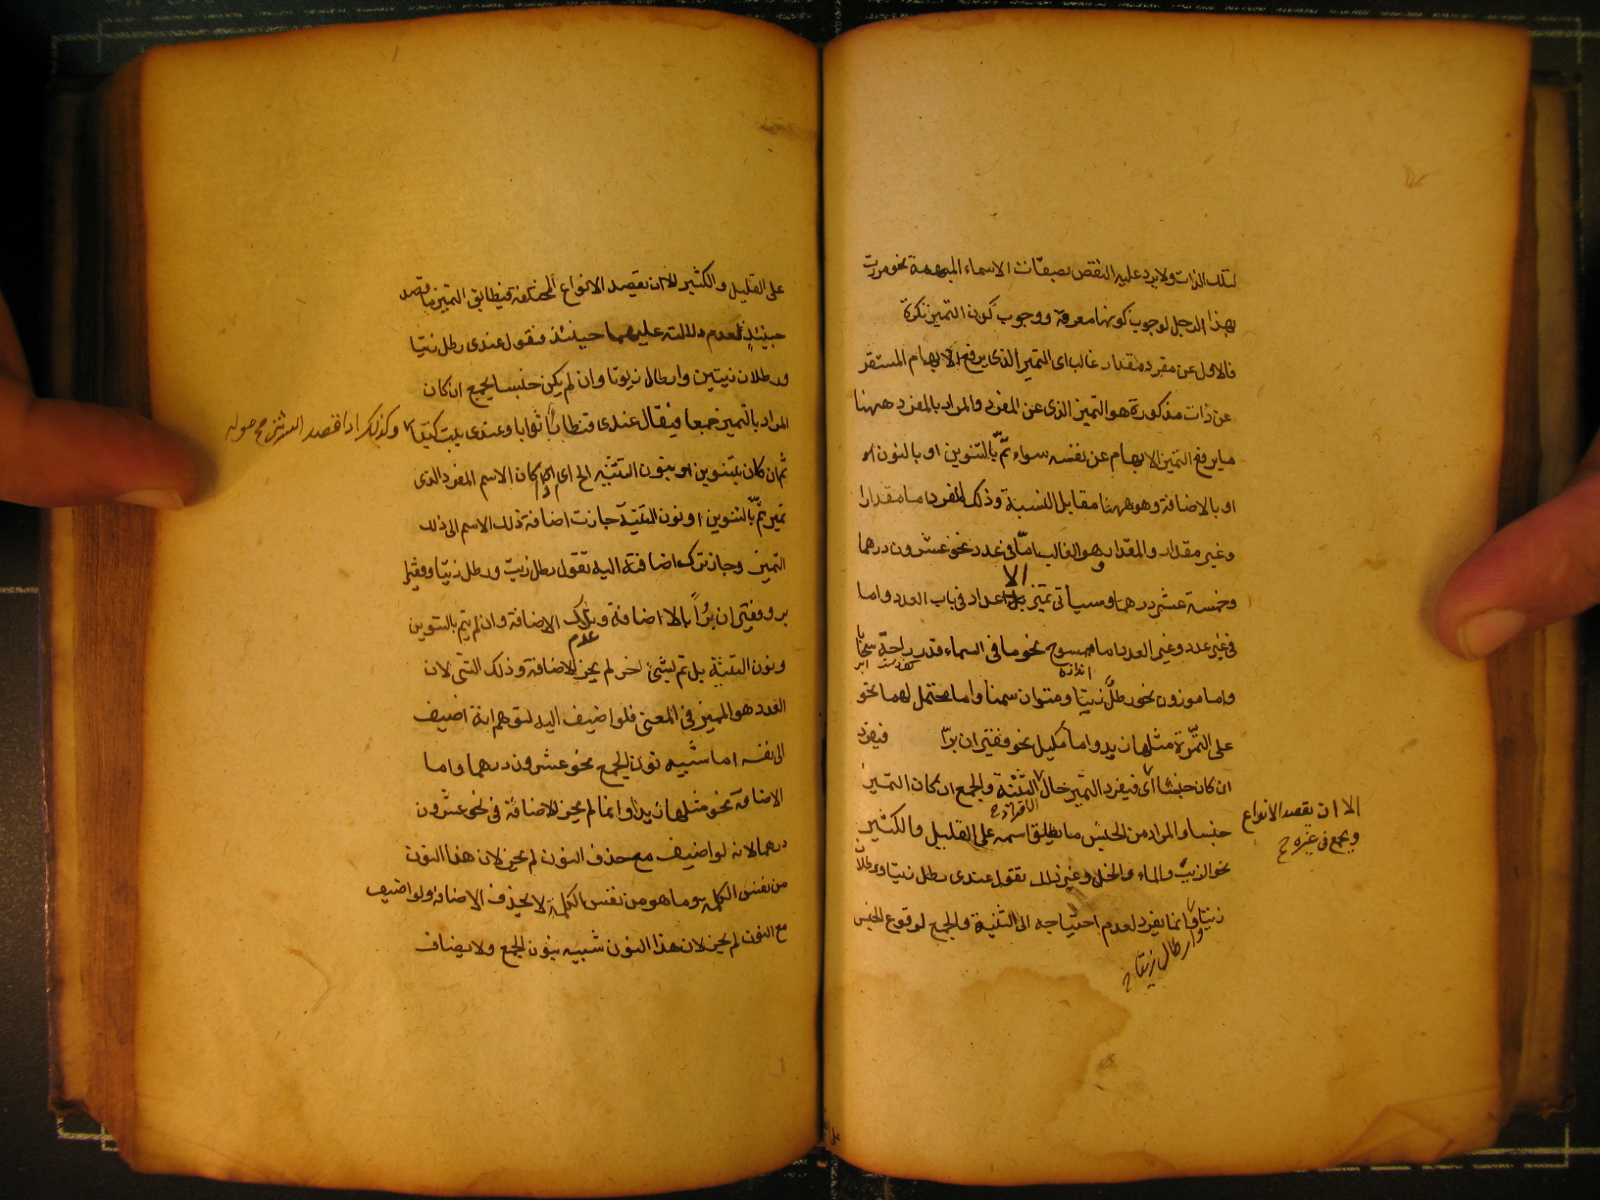 لتلك الذات ولا يرد عليه النقض بصفات الاسماء المبهمة نحو مررت
بهذا الرجل لوجوب كونها معرفة ووجوب كون التميز نكرة
فالاول عن مفرد مقدار غالبا اى التميز الذى يرفع الابهام المستقر
عن ذات مذكورة هو التميز الذى عن المفرد والمراد بالمفرد ههنا
ما يرفع التميز الابهام عن نفسه سواء تم بالتنوين او بالنون او
او بالاضافة وهو ههنا مقابل النسبة وذلك المفرد اما مقدارا
وغير مقدار والمقدار هو الغالب اما فى عدد نحو عشرون درهما
وخمسة عشر درهما وسيأتى تميز الاعداد فى باب العدد واما
فى غير عدد وغير العدد اما ممسوح نحو ما فى السماء قدر راحة سحابا
اندازه كف دست ابر
واما موزون نحو رطل زيتا ومنوان سمنا واما محتمل لهما نحو
على التمرة مثلها زبدا واما مكيل نحو قفيزان برا فيفرد
ان كان جنسا اى فيفرد التميز حال التثنية والجمع ان كان التميز
الا ان يقصد الانواع
ويجمع فى غيره صح
جنسا والمراد من الجنس ما يطلق اسمه على القليل والكثير
نحو الزيت والماء والخل وغير ذلك تقول عندى رطل زيتا ورطلان
زيتا وانما يفرد لعدم احتياجه الى التثنية والجمع لوقوع الجنس
وارطال زيتا صح
على القليل والكثير الا ان يقصد الانواع المختلفة فيطابق التميز ما قصد
حينئذ لعدم دلالته عليهما حينئذ فتقول عندى رطل زيتا
ورطلان زيتين وارطال زيوتا وان لم يكن جنسا يجمع ان كان
المراد بالتميز جمعا فيقال عندى قنطار اثوابا وعندى
وكذلك اذا قصد
ثم ان كان بتنوين او بنون التثنيه الخ اى ان كان الاسم المفرد الذى
تميز تم بالتنوين او نون التثنية جازت اضافة ذلك الاسم الى ذلك
التميز وجاز ترك اضافته اليه تقول رطل زيت ورطل زيتا وقفيزا
بر وقفيزان برا بالاضافة وبترك الاضافة وان لم يتم بالتنوين
عدم
ونون التثنية بل تم بشئ اخر لم يجز الاضافة وذلك الشئ لان
العدد هو المميز فى المعنى فلو اضيف اليه لتوهم انه اضيف
الى نفسه اما شبيه نون الجمع نحو عشرون درهما واما
الاضافة نحو مثلها زبدا وانما لم يجز الاضافة فى نحو عشرون
درهما لانه لو اضيف مع حذف النون لم يجز لان هذا النون
من نفس الكلمة وما هو من نفس الكلمة لا يحذف الاضافة ولو اضيف
مع النون لم يجز لان هذا النون شبيه بنون الجمع ولا يضاف